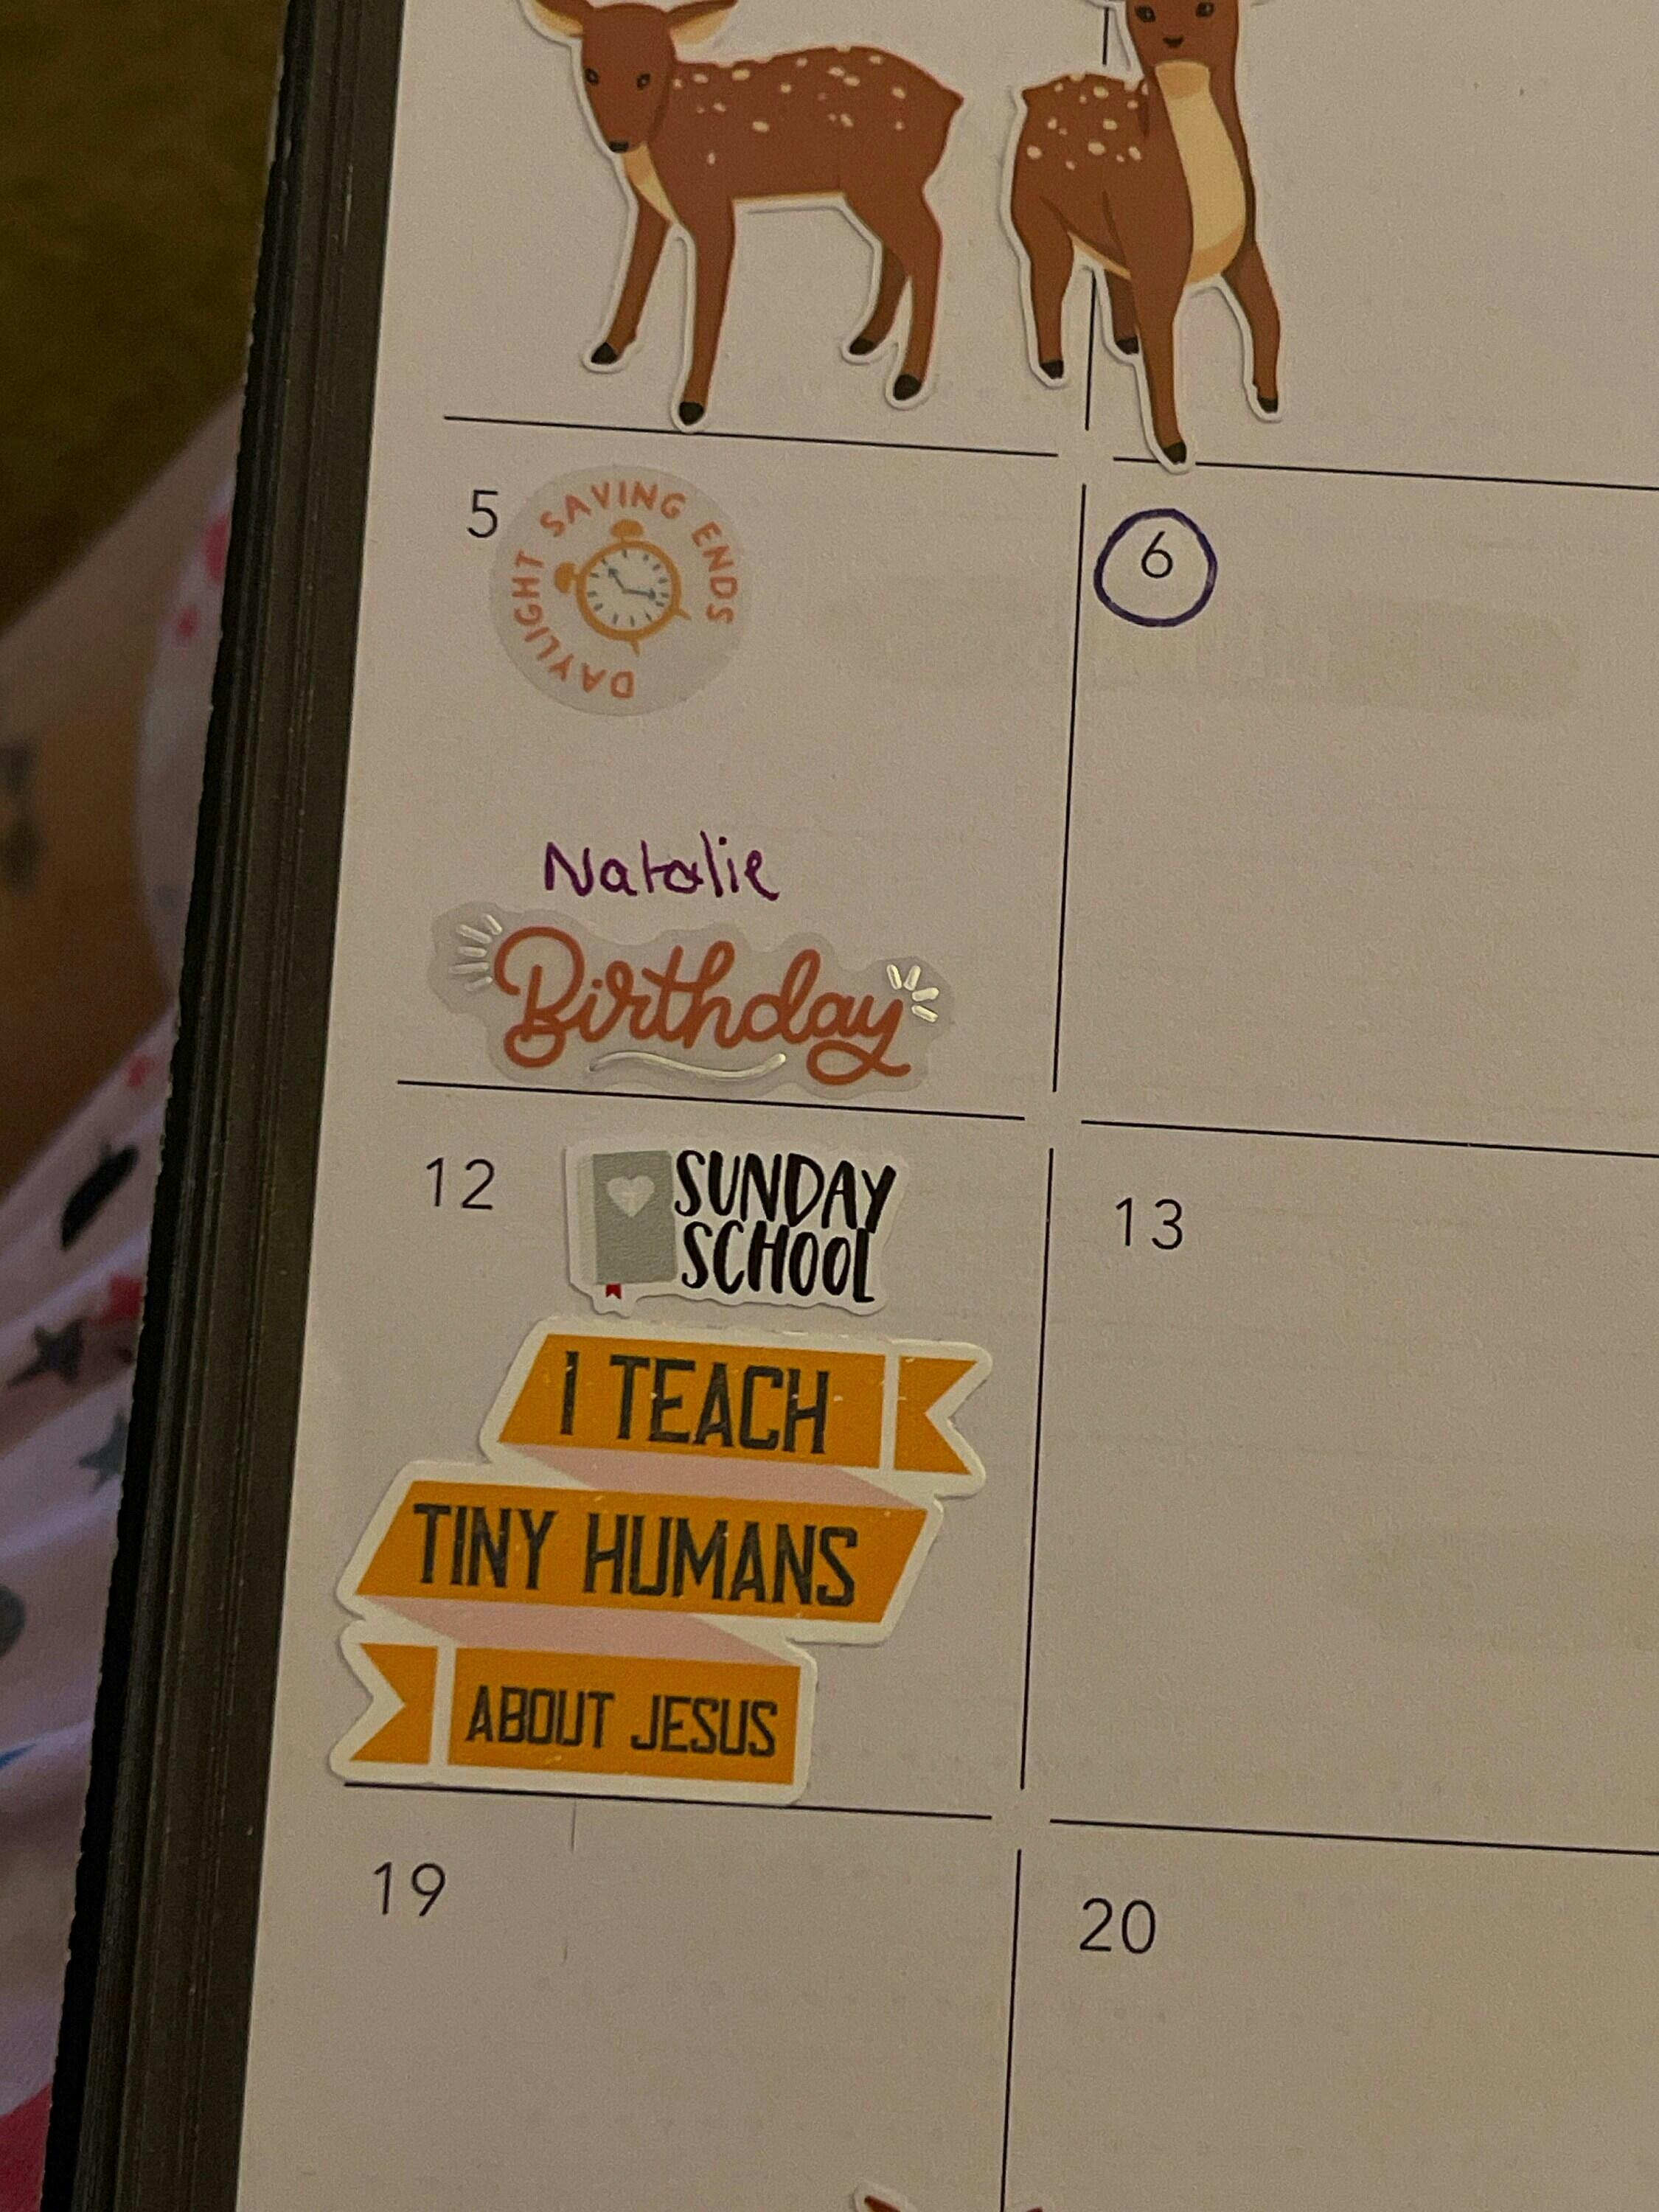 5
DAYLIGHT SAVING ENDS
6
Natalie
Birthday
12
SUNDAY
SCHOOL
13
I TEACH
TINY HUMANS
ABOUT JESUS
19
20